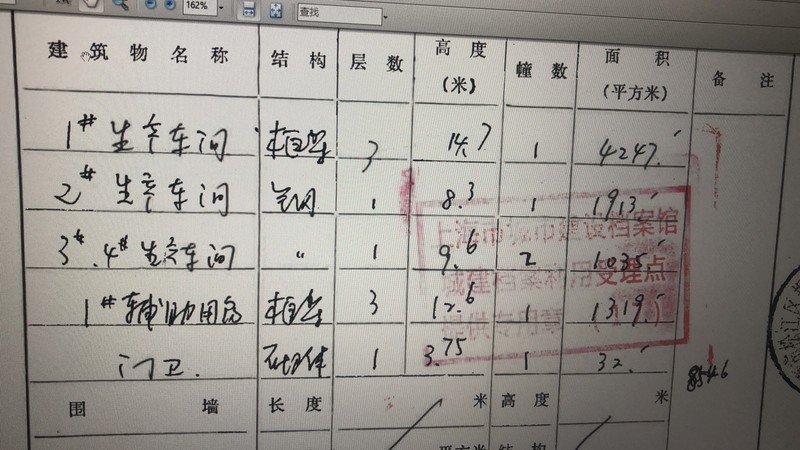 162%
查找
建筑物名称 结构 层数 高度(米) 幢数 面积(平方米) 备注
1# 生产车间 框架 3 14.7 1 4247.
2# 生产车间 钢 1 8.3 1 1913.
3#.4# 生产车间 〃 1 9.6 2 1035.
1# 辅助用房 框架 3 12.6 1 1319.
门卫. 砖混 1 3.75 1 32.
8546
围墙 长度 米 高度 米
平方米 结构
上海市城市建设档案馆
城建档案利用受理点
提供专用章